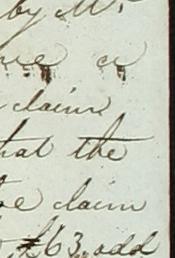 by Mr
a
claim
that the
the claim
£63 odd